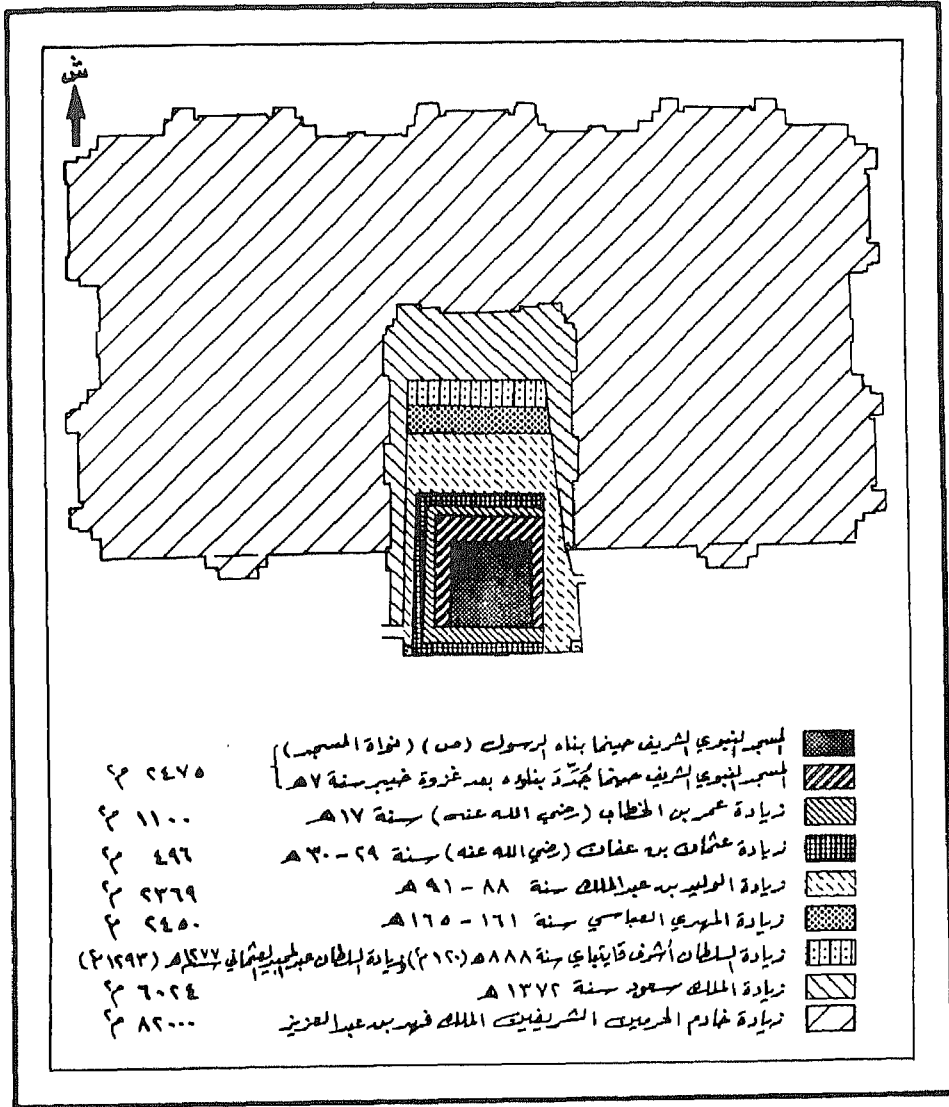 ش
المسجد النبوي الشريف حينما بناه الرسول (ص) (نواة المسجد)
المسجد النبوي الشريف حينما جُدِّدَ بناؤه بعد غزوة خيبر سنة ٧هـ ٢٤٧٥ م٢
زيادة عمر بن الخطاب (رضي الله عنه) سنة ١٧هـ ١١٠٠ م٢
زيادة عثمان بن عفان (رضي الله عنه) سنة ٢٩ - ٣٠ هـ ٤٩٦ م٢
زيادة الوليد بن عبد الملك سنة ٨٨ - ٩١ هـ ٢٣٦٩ م٢
زيادة المهدي العباسي سنة ١٦١ - ١٦٥هـ ٢٤٥٠ م٢
زيادة السلطان أشرف قايتباي سنة ٨٨٨هـ (١٢٠م٢) وزيادة السلطان عبد المجيد العثماني سنة ١٢٧٧هـ (١٢٩٣م٢)
زيادة الملك سعود سنة ١٣٧٢ هـ ٦٠٢٤ م٢
زيادة خادم الحرمين الشريفين الملك فهد بن عبد العزيز ٨٢٠٠٠ م٢